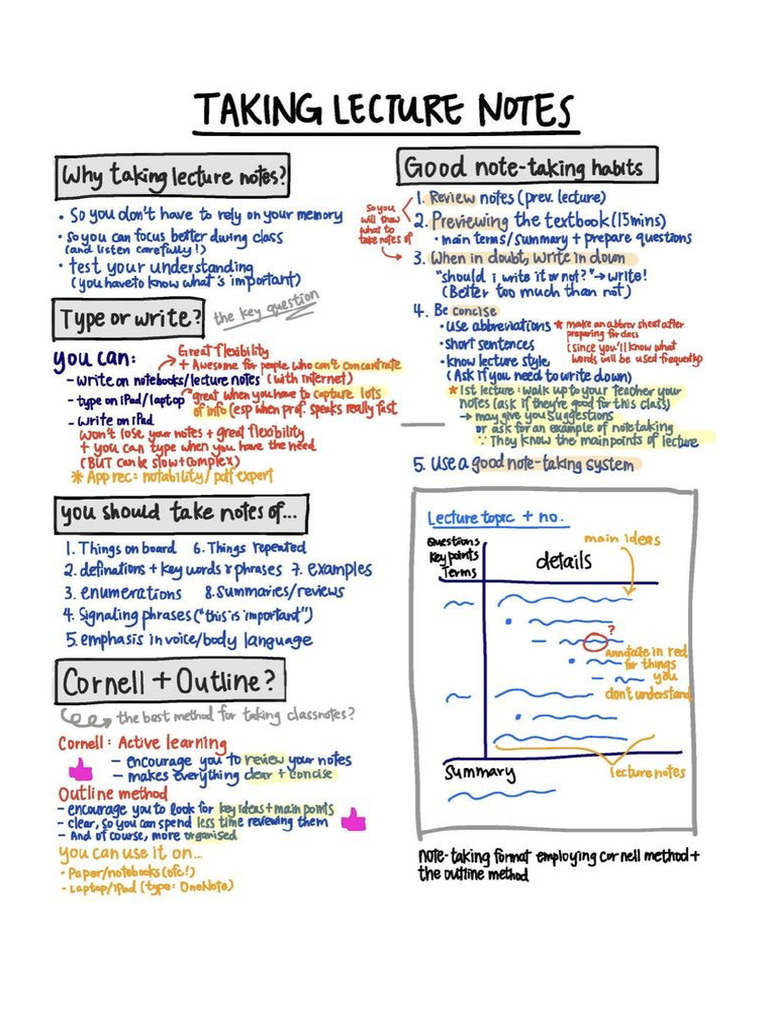 TAKING LECTURE NOTES
Why taking lecture notes?
• So you don't have to rely on your memory
• so you can focus better during class
(and listen carefully!)
• test your understanding
(you have to know what's important)
Type or write?
the key question
you can:
Great flexibility
+ Awesome for people who can't concentrate
- write on notebooks/lecture notes (with internet)
- type on iPad/laptop
great when you have to capture lots
of info (esp when prof. speaks really fast
- write on iPad
won't lose your notes + great flexibility
+ you can type when you have the need
(BUT can be slow + complex)
* App rec: notability/pdf expert
you should take notes of...
1. Things on board 6. Things repeated
2. definations + key words & phrases 7. examples
3. enumerations 8. summaries/reviews
4. Signaling phrases ("this is important")
5. emphasis in voice/body language
Cornell + Outline?
the best method for taking classnotes?
Cornell: Active learning
- encourage you to review your notes
- makes everything clear + concise
Outline method
- encourage you to look for key ideas + main points
- clear, so you can spend less time reviewing them
- And of course, more organised
you can use it on...
• Paper/notebooks (ofc!)
• Laptop/iPad (type: OneNote)
Good note-taking habits
1. Review notes (prev. lecture)
so you
will know
what to
take notes of
2. Previewing the textbook (15mins)
• main terms/summary + prepare questions
3. When in doubt, write in down
"should i write it or not?" → write!
(Better too much than not)
4. Be concise
• use abbreviations
* make an abbrev sheet after
preparing for class
(since you'll know what
words will be used frequently)
• short sentences
• know lecture style
(Ask if you need to write down)
* 1st lecture: walk up to your teacher your
notes (ask if they're good for this class)
→ may give you suggestions
or ask for an example of note taking
∵ They know the main points of lecture
5. Use a good note-taking system
Lecture topic + no.
Questions
Key points
Terms
details
main ideas
?
Annotate in red
for things
you
don't understand
Summary
lecture notes
note-taking format employing cornell method +
the outline method